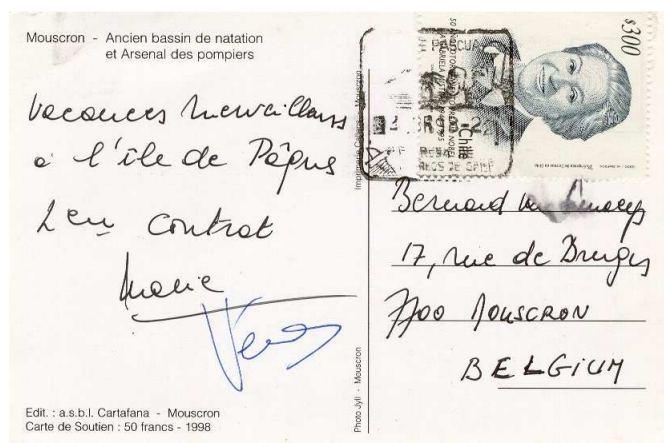 Mouscron - Ancien bassin de natation
et Arsenal des pompiers
Vacances merveilleuses
à l'île de Pâques
contrat
Marie
Edit. : a.s.b.l. Cartafana - Mouscron
Carte de Soutien : 50 francs - 1998
Photo Jyll - Mouscron
Mouscron
$300
Chile
PASCUA
Bernard
17, rue de Bruges
7700 MOUSCRON
BELGIUM